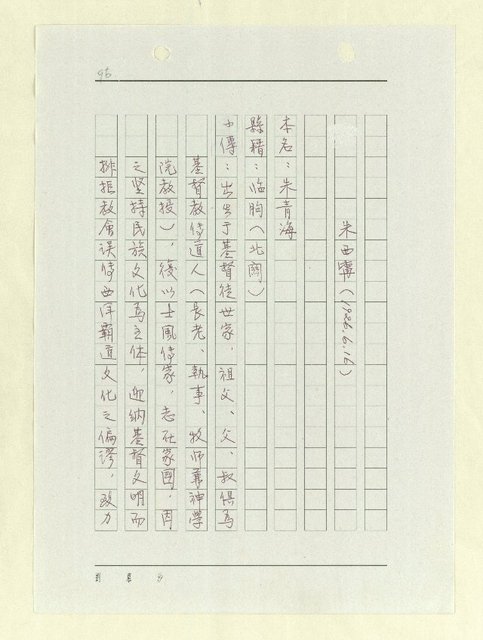 96
朱西甯(1926.6.16)
本名:朱青海
縣籍:临朐(北關)
小傳:出生于基督徒世家,祖父、父、叔俱爲
基督教傳道人(長老、執事、牧師兼神學
院教授),後以士風傳家,志在家國,因
之坚持民族文化爲主体,迎納基督文明而
排拒教會誤傳西洋霸道文化之偏謬,致力